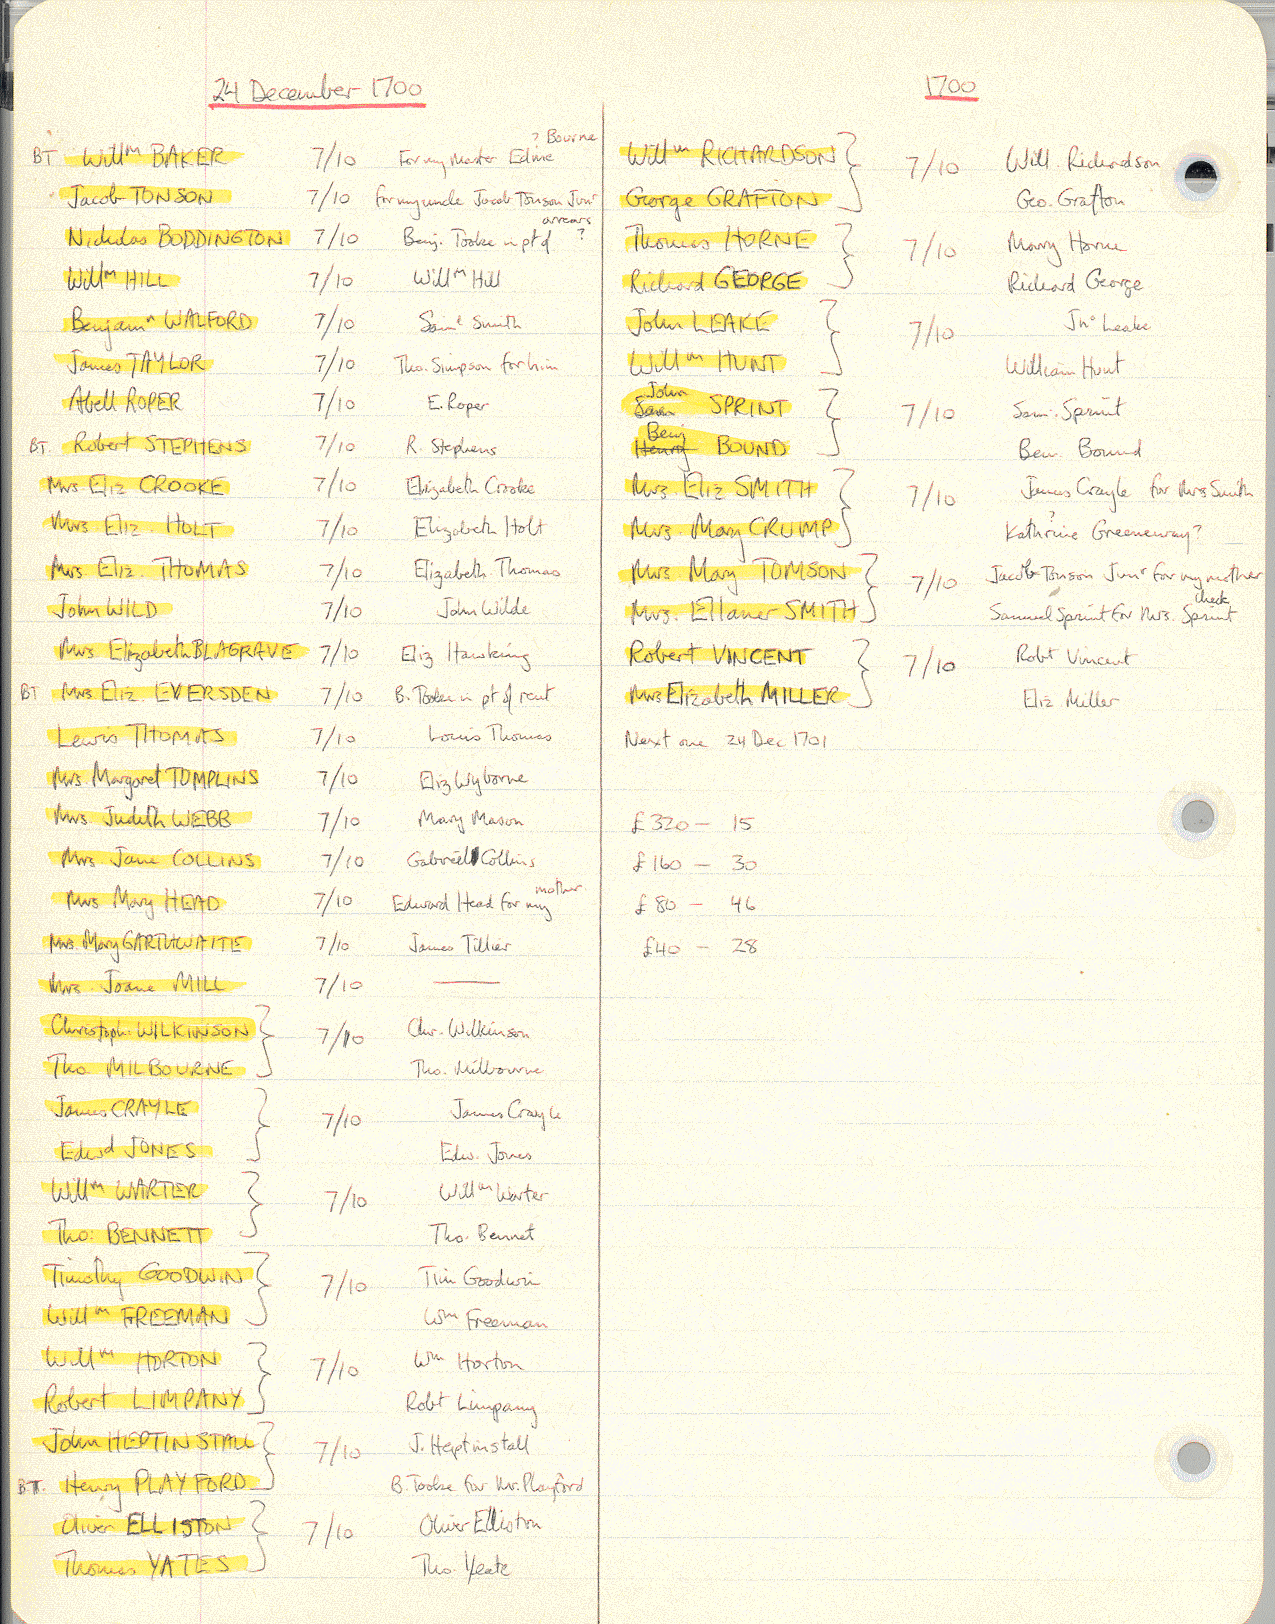 24 December 1700
? Bourne
BT Will^m BAKER 7/10 For my Master Edme
Jacob TONSON 7/10 for my uncle Jacob Tonson Jun^r
arrears
Nicholas BODDINGTON 7/10 Benj. Tooke in pt of ?
Will^m HILL 7/10 Will^m Hill
Benjam^n WALFORD 7/10 Sam^l Smith
James TAYLOR 7/10 Tho. Simpson for him
Abell ROPER 7/10 E. Roper
BT. Robert STEPHENS 7/10 R. Stephens
Mrs. Eliz CROOKE 7/10 Elizabeth Crooke
Mrs Eliz. HOLT 7/10 Elizabeth Holt
Mrs. Eliz. THOMAS 7/10 Elizabeth Thomas
John WILD 7/10 John Wilde
Mrs Elizabeth BLAGRAVE 7/10 Eliz Hawking
BT Mrs Eliz. EVERSDEN 7/10 B. Tooke in pt of rent
Lewis THOMAS 7/10 Louis Thomas
Mrs. Margaret TOMPLINS 7/10 Eliz Wyborne
Mrs Judith WEBB 7/10 Mary Mason
Mrs. Jane COLLINS 7/10 Gabriell Collins
Mrs Mary HEAD 7/10 Edward Head for my mother
Mrs. Mary GARTHWAITE 7/10 James Tillier
Mrs. Joane MILL 7/10 ———
Christoph. WILKINSON } 7/10 Chr. Wilkinson
Tho. MILBOURNE Tho. Milbourne
James CRAYLE } 7/10 James Crayle
Edwd JONES Edw. Jones
Will^m WARTER } 7/10 Will^m Warter
Tho: BENNETT Tho. Bennet
Timothy GOODWIN } 7/10 Tim Goodwin
Will^m FREEMAN W^m Freeman
Will^m HORTON } 7/10 W^m Horton
Robert LIMPANY Robt Limpany
John HEPTINSTALL } 7/10 J. Heptinstall
BT. Henry PLAYFORD B. Tooke for Mr. Playford
Oliver ELLISTON } 7/10 Oliver Elliston
Thomas YATES Tho. Yeate
1700
Will^m RICHARDSON } 7/10 Will. Richardson
George GRAFTON Geo. Grafton
Thomas HORNE } 7/10 Mary Horne
Richard GEORGE Richard George
John LEAKE } 7/10 Jn^o Leake
Will^m HUNT William Hunt
John
Sam SPRINT } 7/10 Sam. Sprint
Benj
Henry BOUND Ben. Bound
Mrs. Eliz SMITH } 7/10 James Crayle for Mrs Smith
Mrs. Mary CRUMP ? Kathrine Greeneway?
Mrs. Mary TOMSON } 7/10 Jacob Tonson Jun^r for my mother
check
Mrs. Ellaner SMITH Samuel Sprint for Mrs. Sprint
Robert VINCENT } 7/10 Robt Vincent
Mrs Elizabeth MILLER Eliz. Miller
Next one 24 Dec 1701
£320 — 15
£160 — 30
£80 — 46
£40 — 28